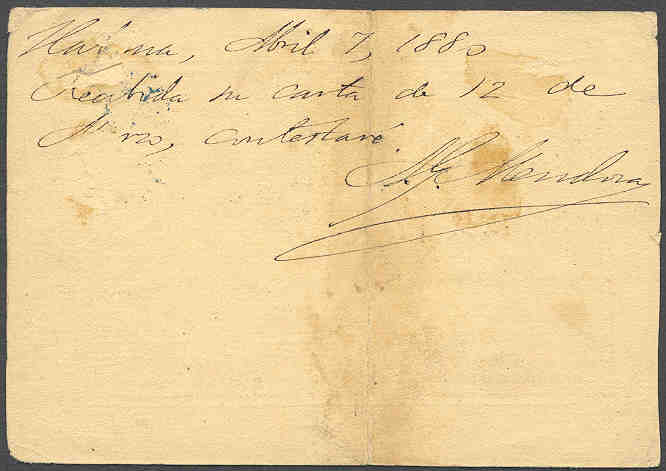 Habana, Abril 7, 1880
Recibida su carta de 12 de
Mrzo, contestaré
Mendoza